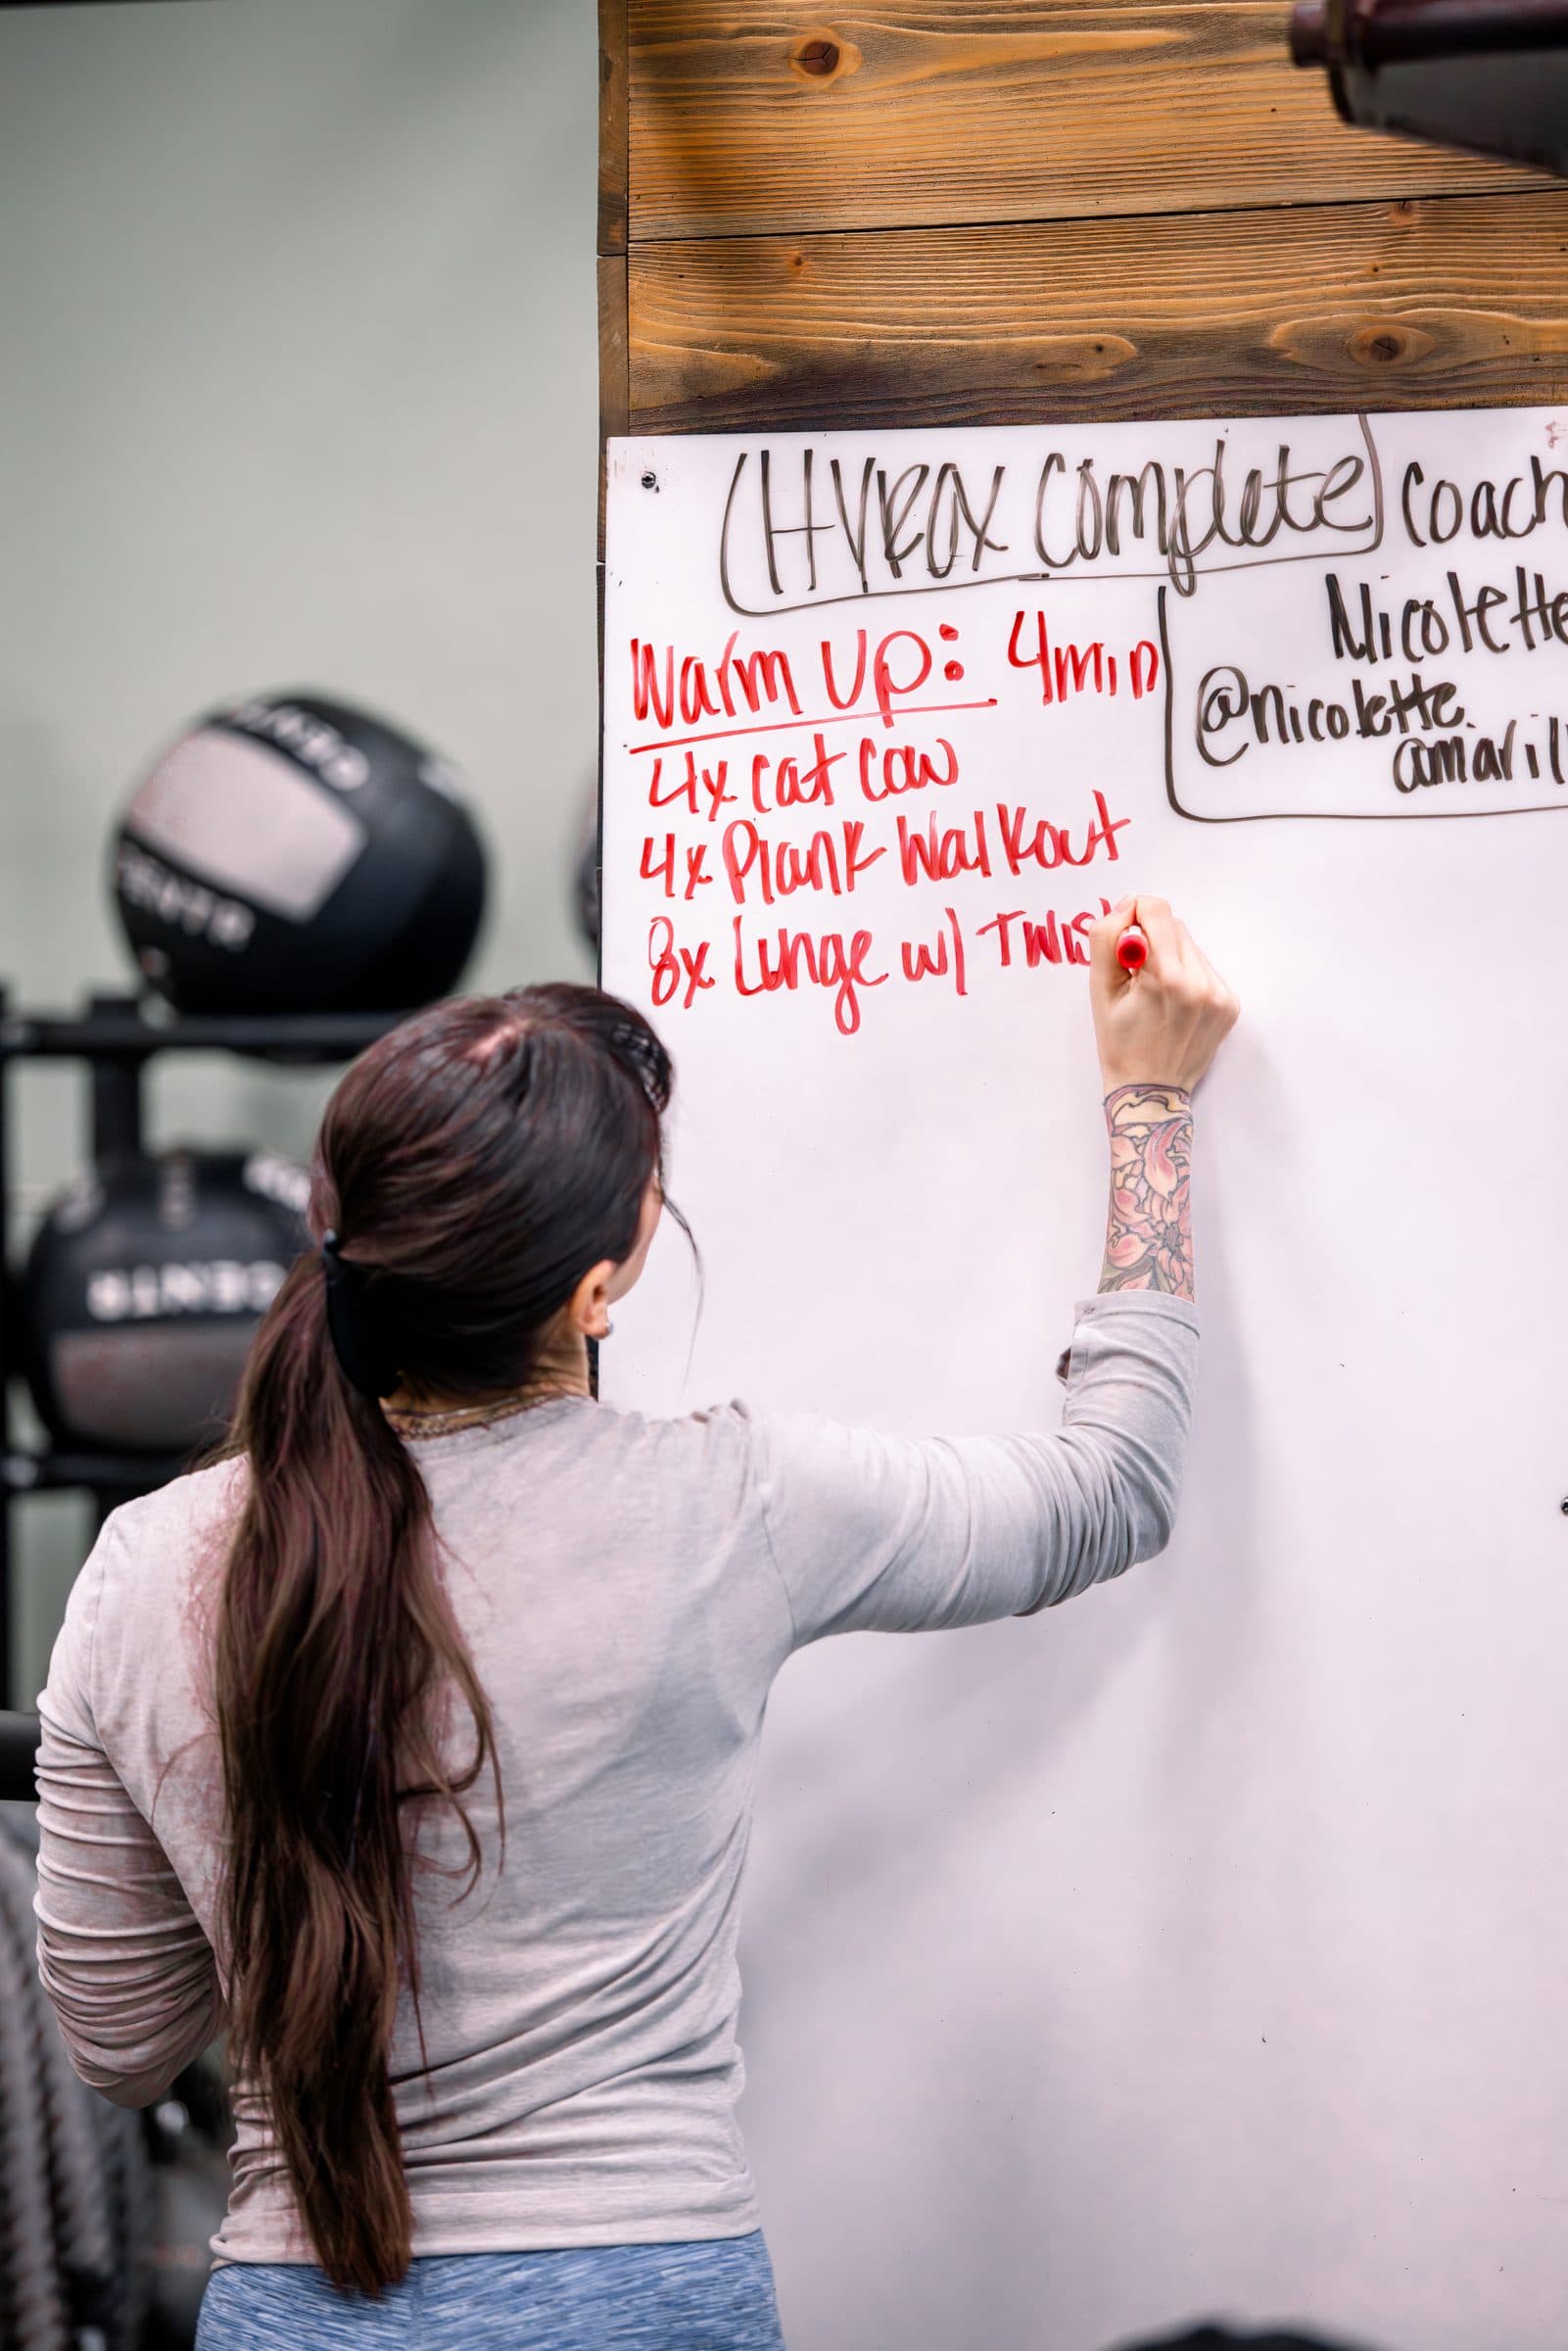 HYROX Complete Coach
Nicolette
@nicolette
amarill
Warm Up: 4min
4x Cat Cow
4x Plank Walkout
8x Lunge w/ Twist
CENTR
CENTR
CENTR